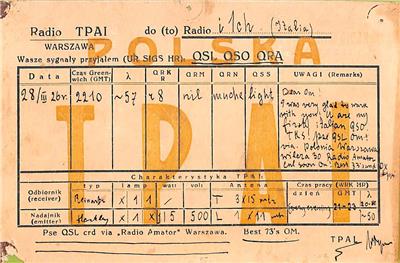 Radio TPAI do (to) Radio i 1ch (Italia)
WARSZAWA
POLSKA
Wasze sygnały przyjąłem (UR SIGS HR). QSL QSO QRA
Data Czas Greenwich (GMT) λ QRK R QRM QRN QSS UWAGI (Remarks)
28/III 26r. 2210 ~57 r8 nil much light
Dear Om!
I was very glad to work
with you. U are my
first italian QSO
TKS! Pse QSL om!
via. Polonia Warszawa
Wilcza 30 Radio Amator
Cul soon Om! Best 73's and
Dx
TPAI
Charakterystyka TPAI:
typ lamp watt volt Antena Czas pracy (WRK HR)
dzień GMT λ
Odbiornik (receiver) Reinartz x 1 1 / / T 3 x 15 mtr 21-23
Nadajnik (emitter) Hartley x 1 x 15 500 L 1 x 11 mtr ~50
Pse QSL crd via „Radio Amator" Warszawa. Best 73's OM. TPAI